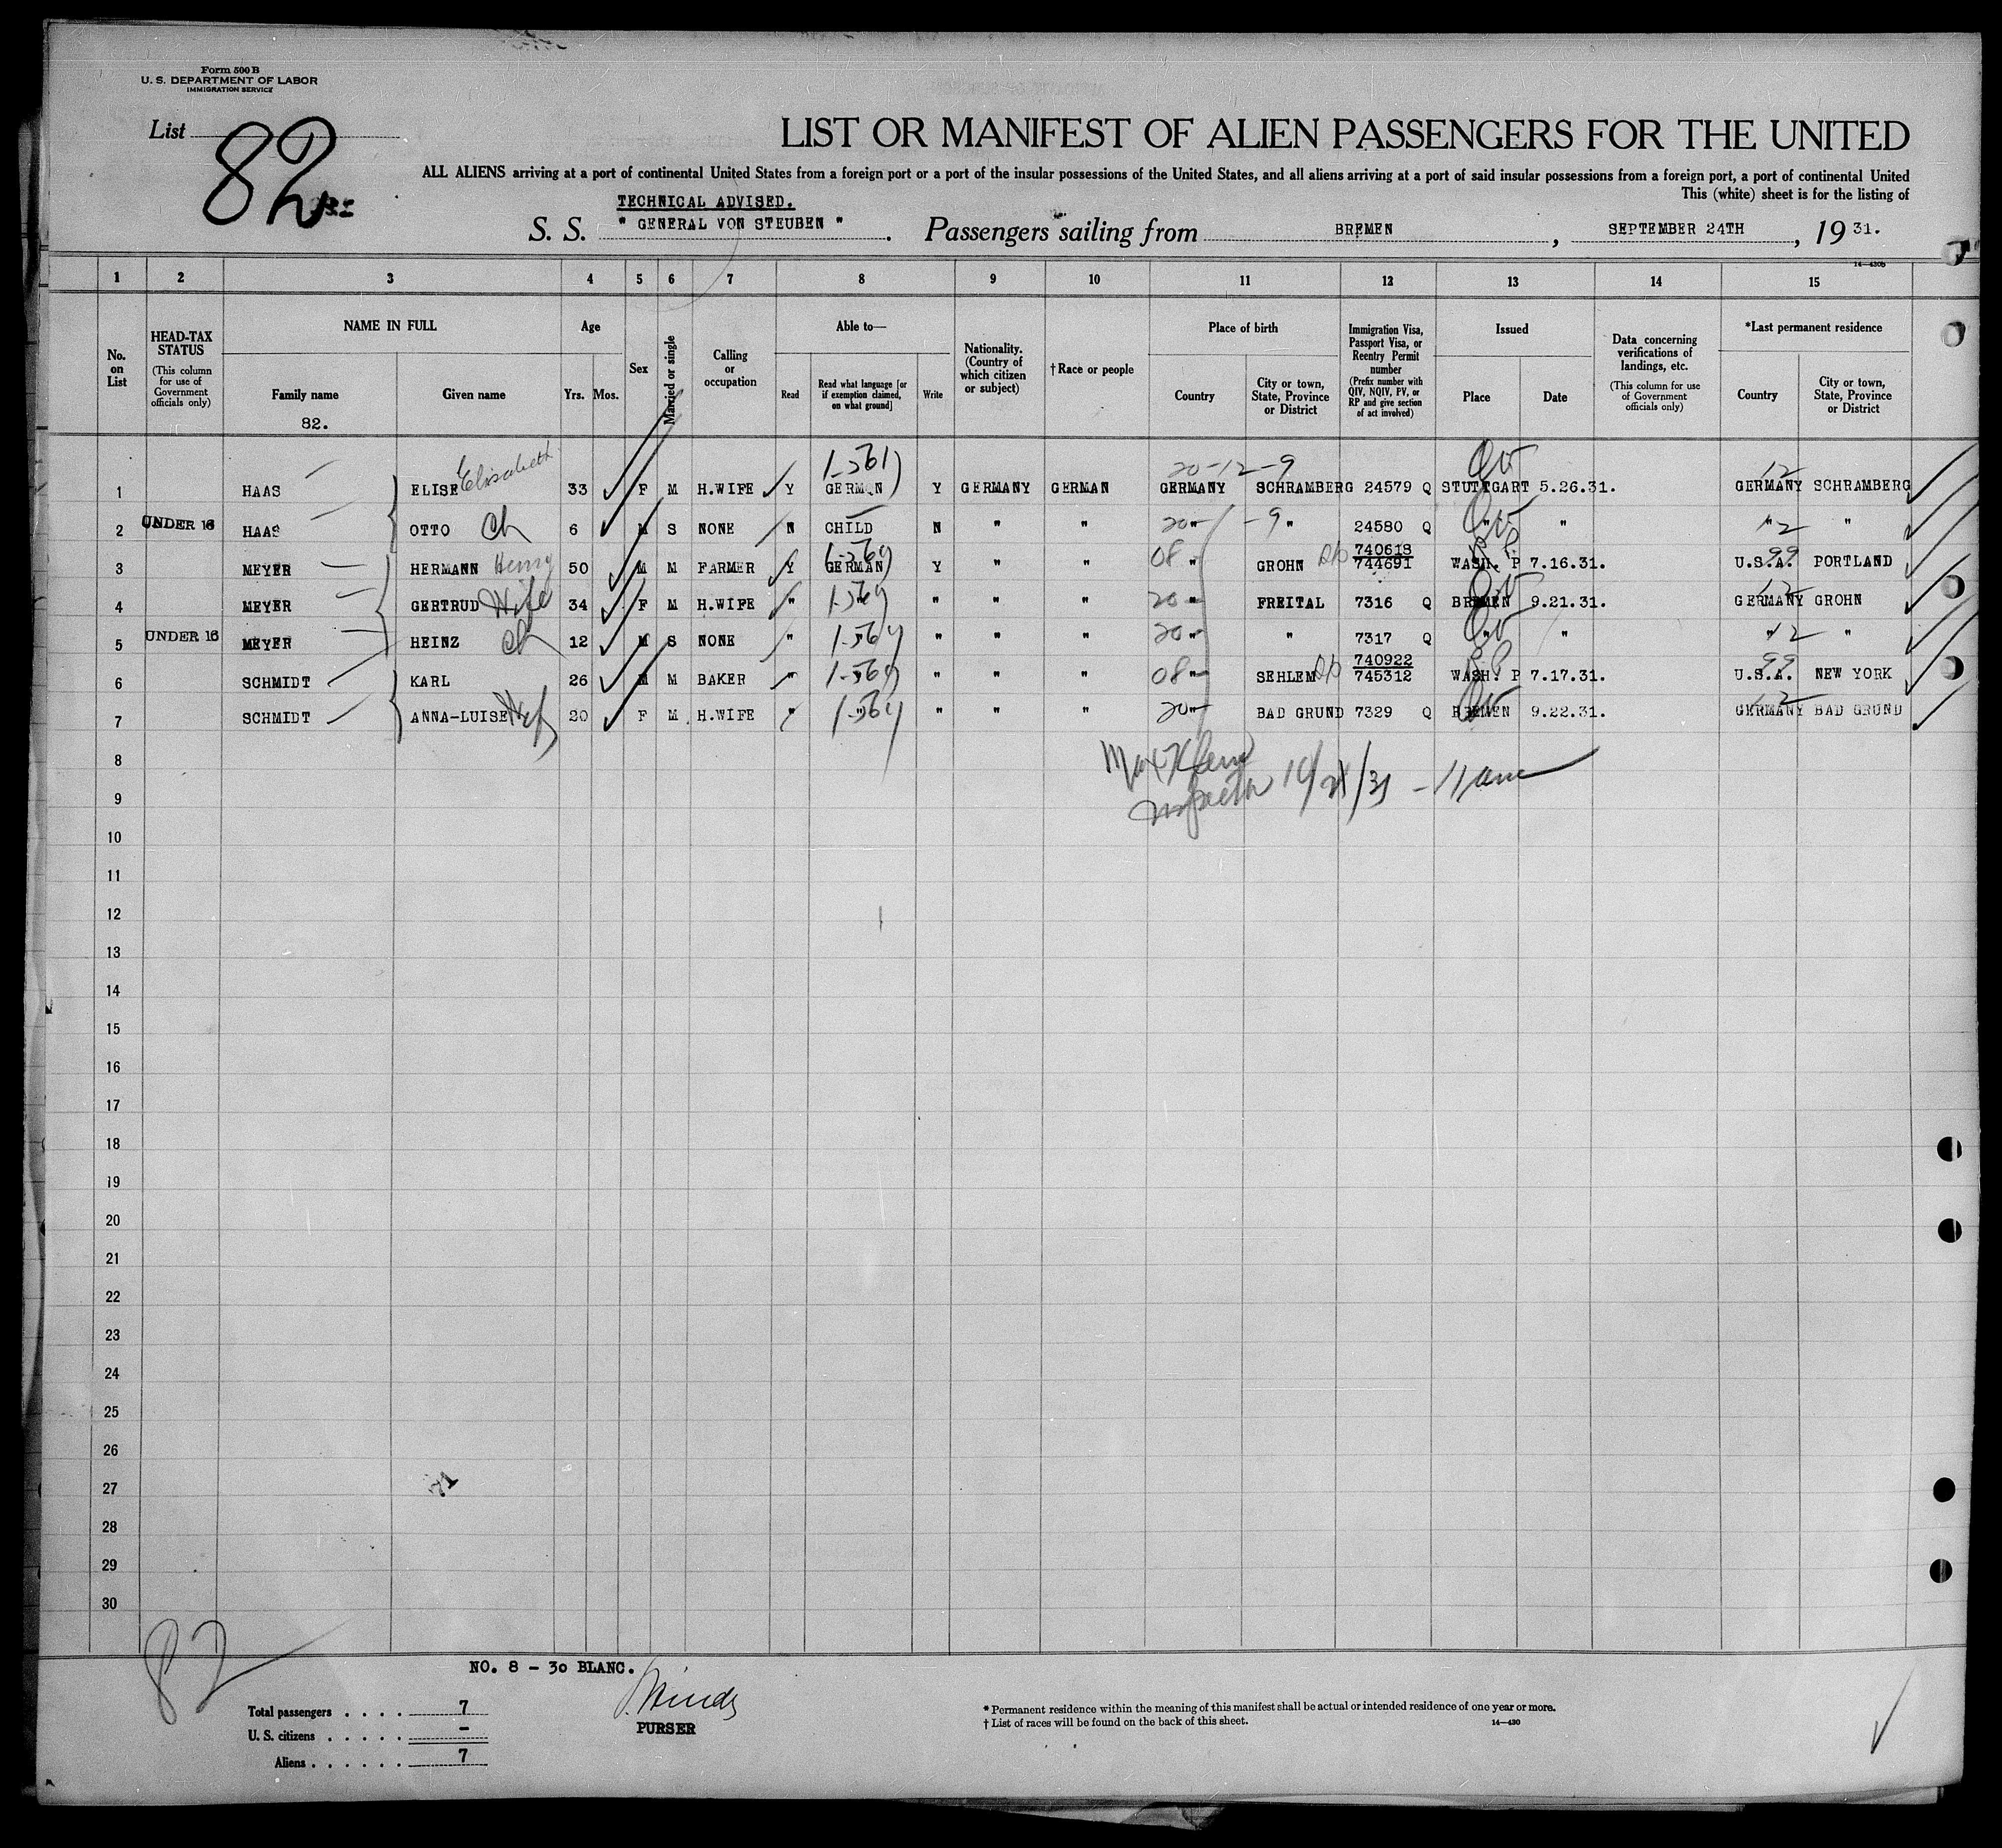 Form 500 B
U. S. DEPARTMENT OF LABOR
IMMIGRATION SERVICE
List 82
LIST OR MANIFEST OF ALIEN PASSENGERS FOR THE UNITED
ALL ALIENS arriving at a port of continental United States from a foreign port or a port of the insular possessions of the United States, and all aliens arriving at a port of said insular possessions from a foreign port, a port of continental United
This (white) sheet is for the listing of
TECHNICAL ADVISED.
S. S. " GENERAL VON STEUBEN " . Passengers sailing from BREMEN , SEPTEMBER 24TH , 19 31.
14—430b
1 2 3 4 5 6 7 8 9 10 11 12 13 14 15
No. on List
HEAD-TAX STATUS (This column for use of Government officials only)
NAME IN FULL
Family name
82.
Given name
Age
Yrs. Mos.
Sex
Married or single
Calling or occupation
Able to—
Read
Read what language [or if exemption claimed, on what ground]
Write
Nationality. (Country of which citizen or subject)
† Race or people
Place of birth
Country
City or town, State, Province or District
Immigration Visa, Passport Visa, or Reentry Permit number (Prefix number with QIV, NQIV, PV, or RP and give section of act involved)
Issued
Place
Date
Data concerning verifications of landings, etc. (This column for use of Government officials only)
*Last permanent residence
Country
City or town, State, Province or District
1 HAAS ELISE Elisabeth 33 F M H.WIFE Y GERMAN Y GERMANY GERMAN 20-12-9 GERMANY SCHRAMBERG 24579 Q STUTTGART 5.26.31. 12 GERMANY SCHRAMBERG
2 UNDER 16 HAAS OTTO Ch 6 M S NONE N CHILD N " " 20 " -9 " 24580 Q " " 12 " "
3 MEYER HERMANN Henry 50 M M FARMER Y GERMAN Y " " 08 " GROHN 740613 744691 WASH. P 7.16.31. 99 U.S.A. PORTLAND
4 MEYER GERTRUD Wife 34 F M H.WIFE " " " " " 20 " FREITAL 7316 Q BREMEN 9.21.31. 12 GERMANY GROHN
5 UNDER 16 MEYER HEINZ Ch 12 M S NONE " " " " " 20 " " 7317 Q " " 12 " "
6 SCHMIDT KARL 26 M M BAKER " " " " " 08 " SEHLEM 740922 745312 WASH. P 7.17.31. 99 U.S.A. NEW YORK
7 SCHMIDT ANNA-LUISE 20 F M H.WIFE " " " " " 20 " BAD GRUND 7329 Q BREMEN 9.22.31. 12 GERMANY BAD GRUND
8
9
10
11
12
13
14
15
16
17
18
19
20
21
22
23
24
25
26
27
28
29
30
82
NO. 8 - 30 BLANC.
Total passengers . . . . 7
U. S. citizens . . . . . –
Aliens . . . . . . 7
PURSER
* Permanent residence within the meaning of this manifest shall be actual or intended residence of one year or more.
† List of races will be found on the back of this sheet.
14—430